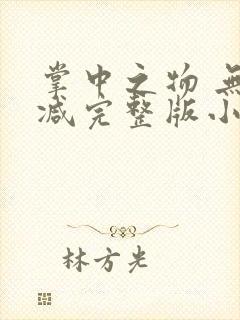 掌中之物 無
减完整版小
林方光